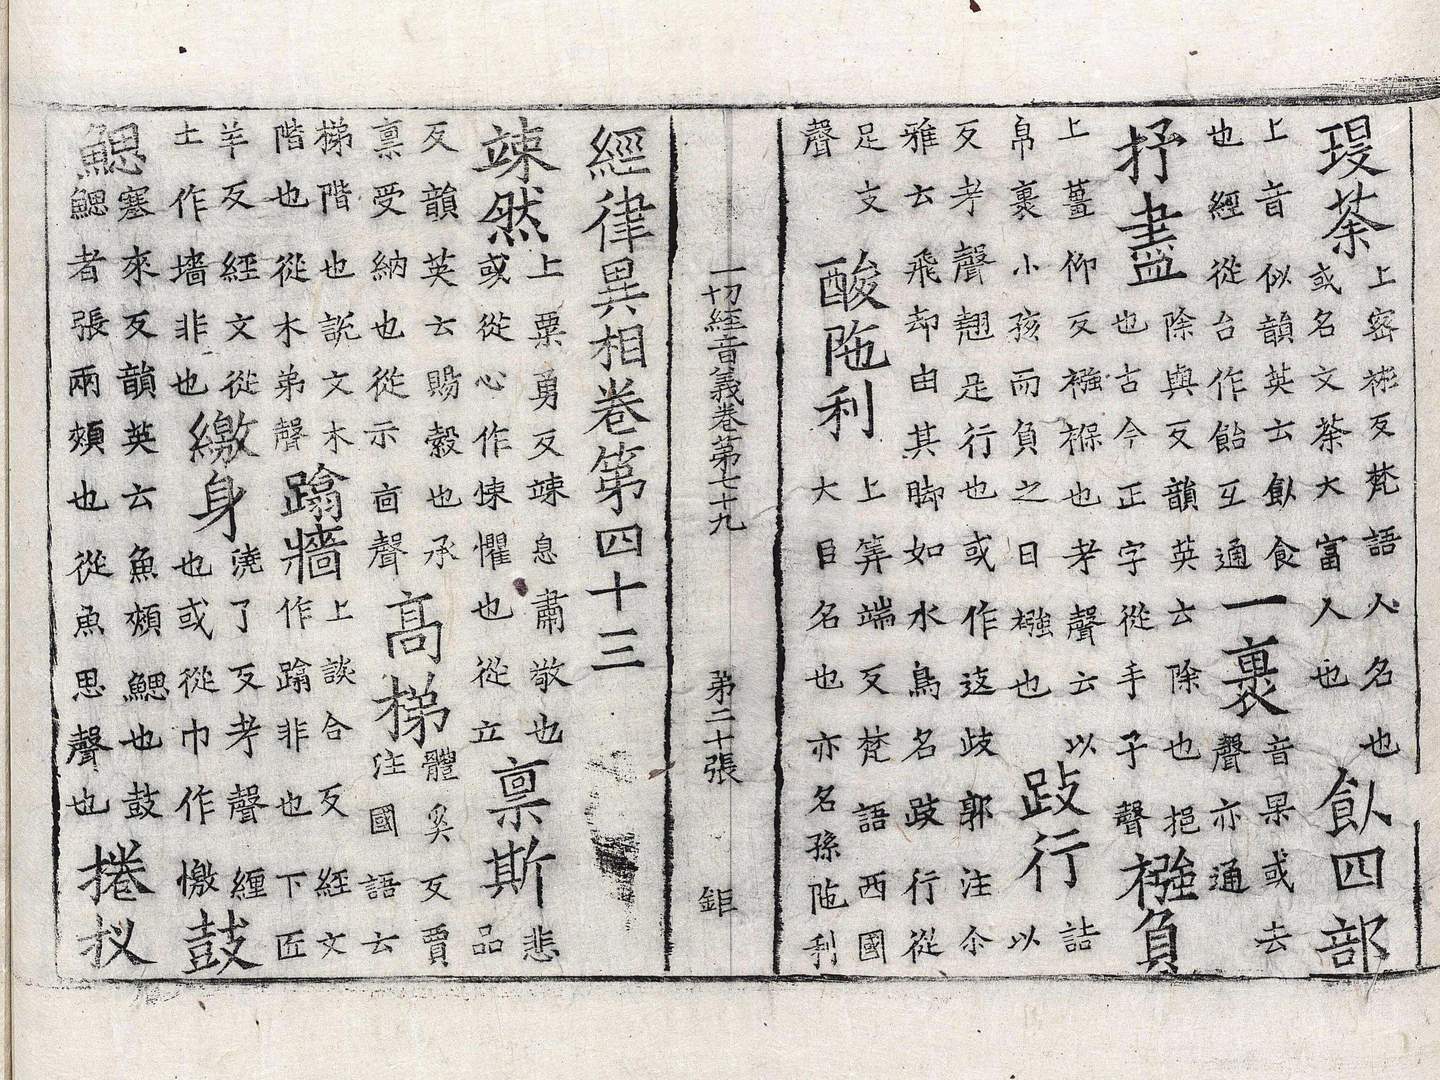 瑖荼上密彬反梵語人名也
或名文荼大富人也飤四部
上音似韻英云飤食
也經從台作飴互通一裹音果或去
聲亦通
抒盡除與反韻英云除也挹
也古今正字從手予聲襁負
上薑仰反襁褓也考聲云以
帛裹小孩而負之曰襁也跂行詰
以
反考聲翹足行也或作䟗歧郭注尒
雅云飛却由其脚如水鳥名跂行從
足支
聲酸陁利上筭端反梵語西國
大臣名也亦名孫陁利
一切經音義卷第七十九 第二十張 鉅
經律異相卷第四十三
竦然上粟勇反竦息肅敬也
或從心作悚懼也從立禀斯悲
品
反韻英云賜穀也承
禀受納也從示㐭聲高梯體奚反賈
注國語云
梯階也説文木
階也從木弟聲蹹牆上談合反經文
作蹹非也下匠
羊反經文從
土作墻非也繳身澆了反考聲纏
也或從巾作憿鼓
鰓塞來反韻英云魚頰鰓也鼓
鰓者張兩頰也從魚思聲也捲杈